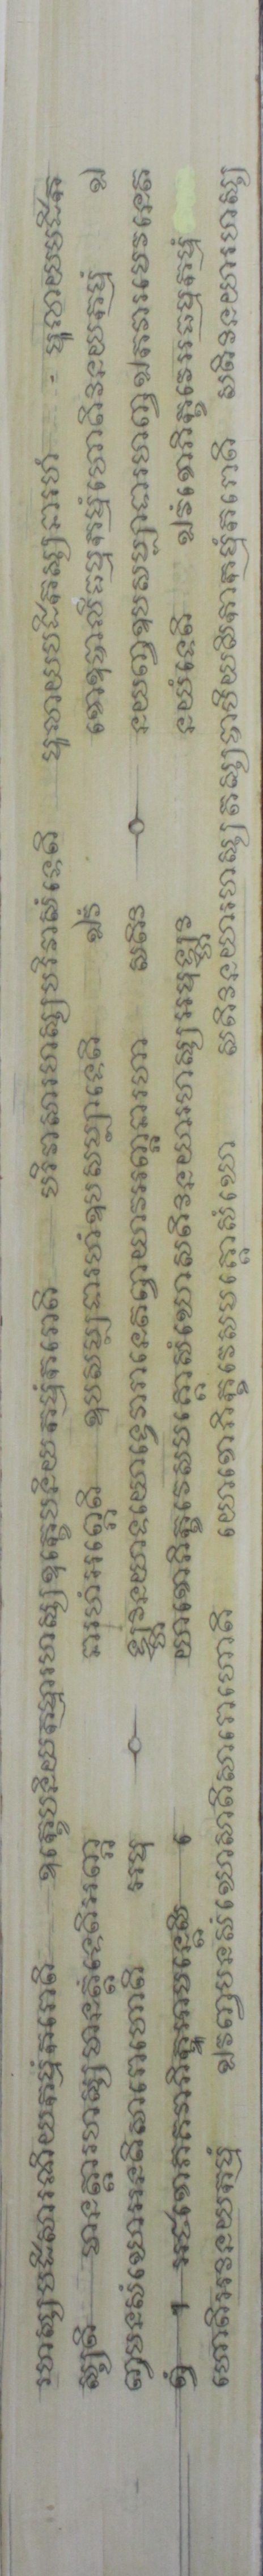 រហស្សបដិសារណិយកម្មំករោតិ ឧក្ខេបនិយកម្មារហស្សឧក្ខេបនិយកម្មំករោតិ បរិវាសារហស្សបរិវាសំទេតិ មូលាយបដិកស្សនារហំ មូលាយបដិក
ស្សតិ មានត្តារហស្សមានត្តំទេតិអព្ភា នារហំអព្ភេតិ ឧបសម្បទារហំឧបសម្បាទេតិ ឯវំ ខោឧបាលិធម្មកម្មំហោតិវិនយកម្មំ ឯ
វញ្ចបនសំឃោអនតិសារោហោតិ អមូ ឡ្ហវិនយោទ្វយោទ្វេវារានេតព្វាយាវអព្ភានារហា សតិវិ នយញ្ចឧបសម្បទារហញ្ចឯកវារមេវនេត
ព្វំ ។ អថខោភគវាភិក្ខូអាមន្តេសិ យោខោភិក្ខវេសមគ្គោសំឃោសតិវិនយារហស្សអមូឡ្ហវិ នយំទេតិ ឯវំខោភិក្ខវេអធម្មកម្មំ
ហោតិអវិនយកម្មំ ឯវញ្ចបនសំឃោសាតិសារោហោតិ យោខោភិក្ខវេសមគ្គោសំឃោ សតិវិនយារហស្សតស្សបាបិយសិកាកម្មំករោតិ សតិវិនយារហស្ស